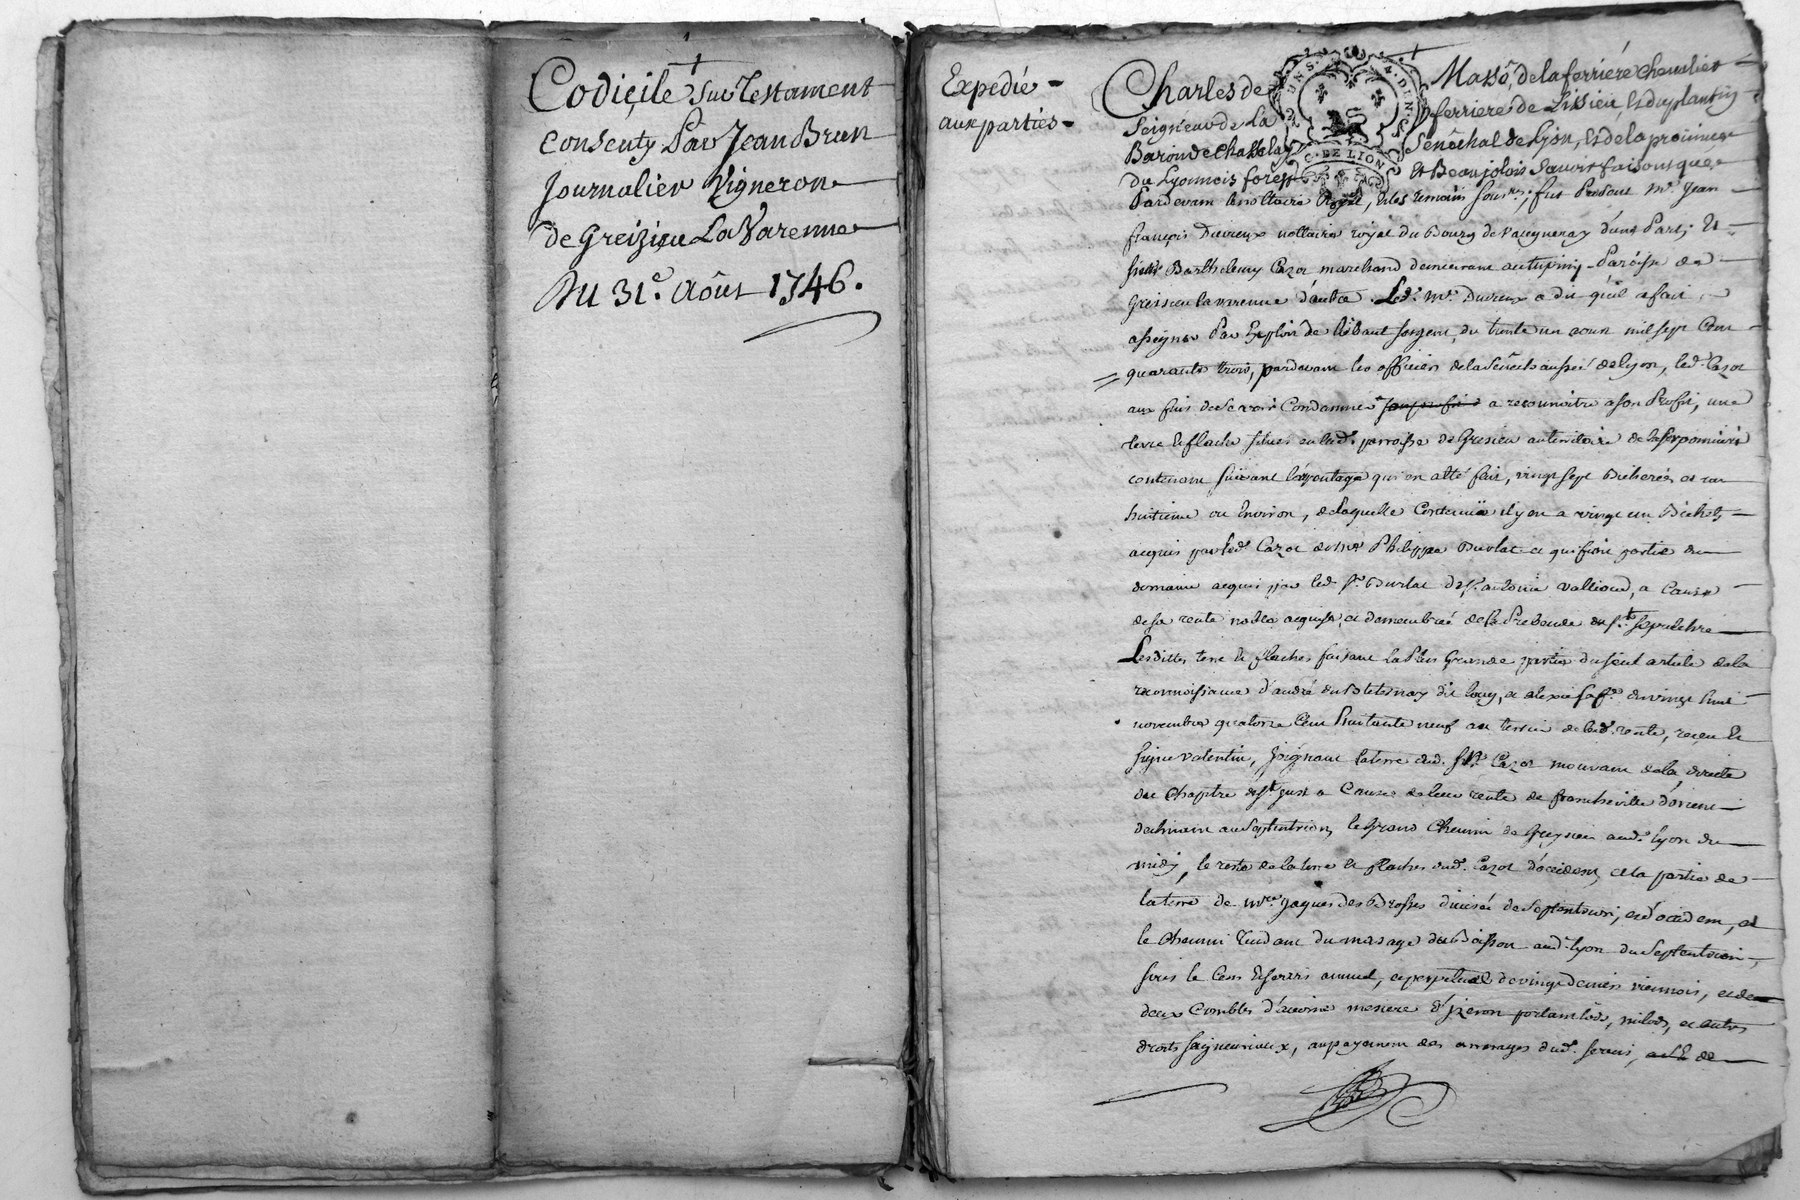 Codiçile Sur Testament
Consenty Par Jean Brun
Journalier Vigneron
de Greizieu La Varenne
Du 31.e Août 1746.
Expedié
aux parties
Charles de Masso de la ferriére chevalier
Seigneur de La ferriere de Lissieu et du plantin
Baron de Chasselay Senéchal de Lyon, et de la province
du Lyonnois forest et Beaujolois savoir faisons que
2 SOLS. 4. DEN.
G. DE LION
Pardevant le nottaire Royal, et les temoins sous.nés, fut Present Mr. Jean
françois Duvreux nottaire royal du Bourg de Vaugneray d'une Part, Et
sieur Barthelemy Cazot marchand demeurant au tupiny Paroisse de
Greizieu la varenne d'autre. Led. Mr. Duvreux a dit qu'il a fait
assigner Par Exploit de Thibaut sergent, du trente un aoust mil sept Cent
quarante trois, pardevant les officiers de la Senechaussée de Lyon, led. Cazot
aux fins de se voir Condamner a reconnoitre a son Profit, une
terre et flache situés en lad. parroisse de Gresieu au territoire de la
contenant suivant l'arpentage qui en a été fait, vingt sept Bicherées et un
huitieme ou Environ, de laquelle Contenüe il y en a vingt un Bichets
acquis par led. Cazot de Mr Philippe Burlat et qui font partie du
domaine acquis par led. Sr. Burlat de Sr. antoine Vallioud, a Cause
de sa rente noble acquise, et demembrée de la Prebende du St. Sepulchre
Lesdittes terre et flaches faisant la Plus Grande partie du seul article de la
reconnoissance d'andré du dit et sa fe. du vingt huit
novembre quatorze Cent Huitante neuf au terrier de lad. rente, reçeu Et
signé valentin, Joignant la terre dud. Sr. Cazot mouvant de la directe
du Chapitre de St. Just a Cause de leur rente de francheville d'orient
declinant au Septentrion, le Grand Chemin de Greysieu aud. Lyon du
midy, le reste de la terre et flaches dud. Cazot d'occident, et la partie de
la terre de Mre. Jaques des Brosses divisée de Septentrion, et d'occident, et
le Chemin Tendant du mas du Boisson aud. Lyon du Septentrion,
sous le Cens et servis annuel, et perpetuel de vingt deniers viennois, et de
deux Combles d'avoine mesure d'yzeron portant lods, milods, et autres
droits seigneuriaux, au payement des arrerages dud. servis, et de